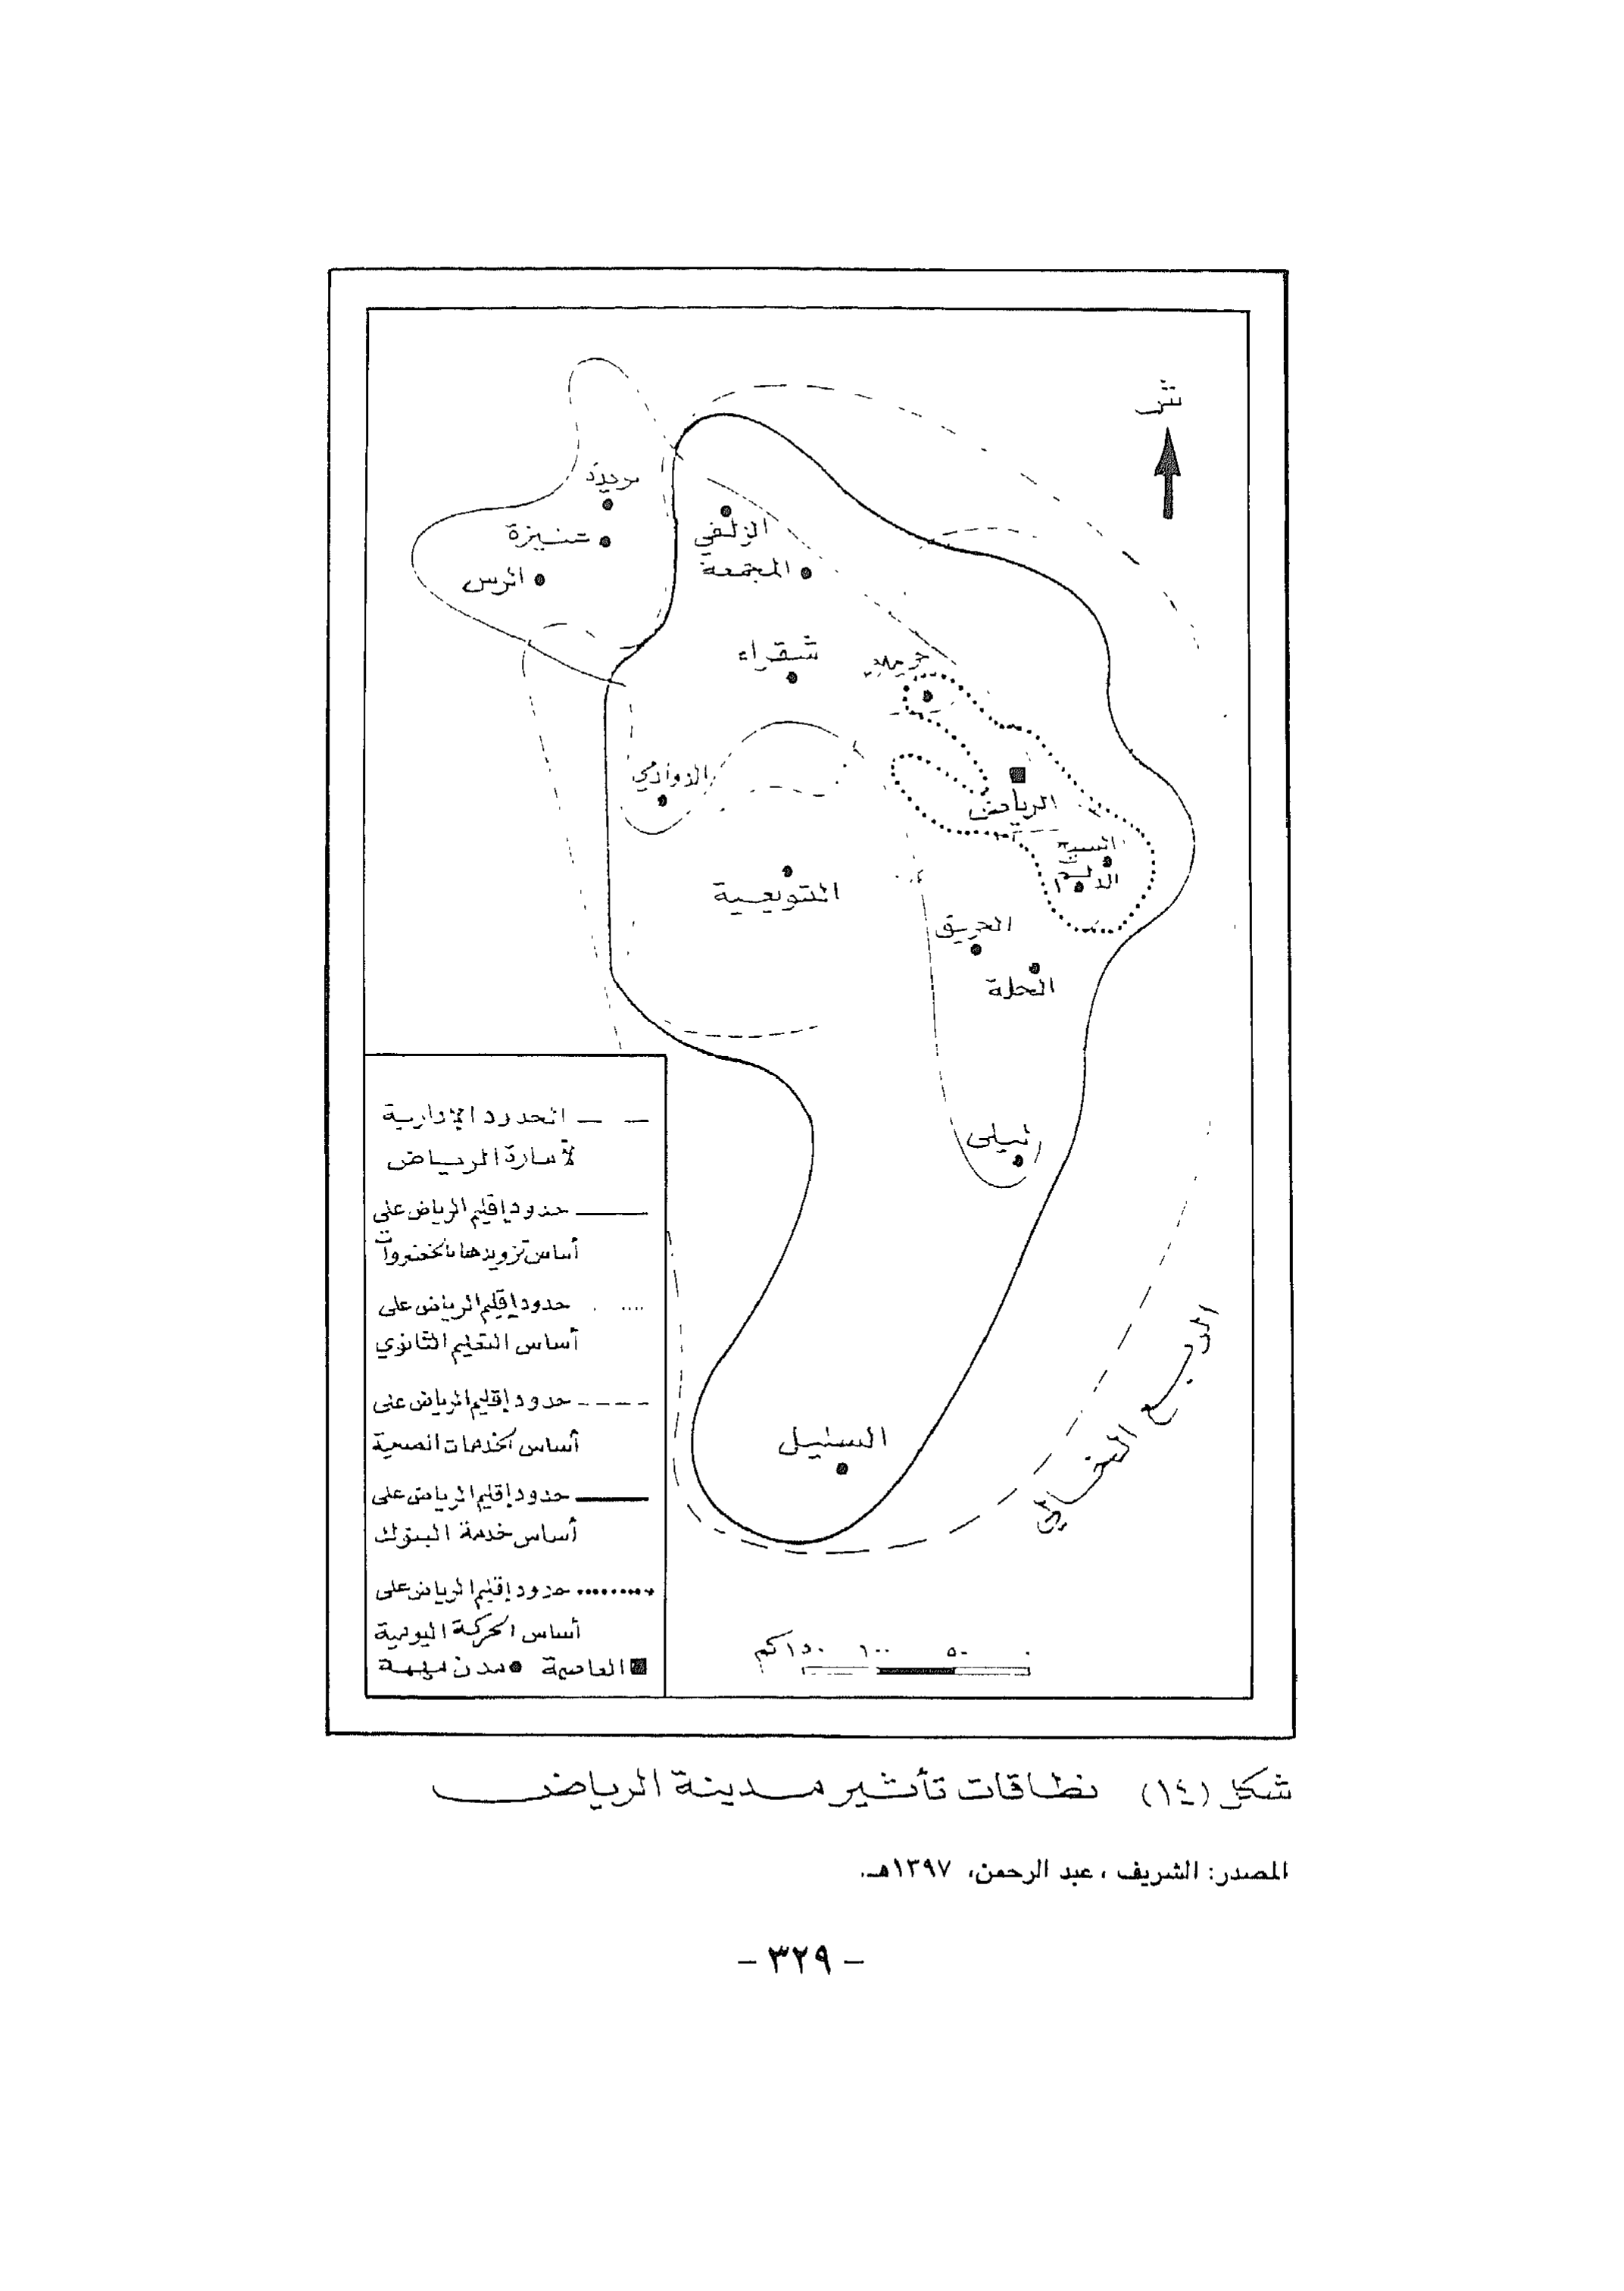 ش
بريدة
عنيزة
الرس
الزلفي
المجمعة
شقراء
حريملاء
الدوادمي
الرياض
السيح
الدلم
القويعية
الحريق
الحلة
ليلى
السليل
الربع الخالي
الحدود الإدارية
لأمارة الرياض
حدود إقليم الرياض على
أساس تزويدها بالخضروات
حدود إقليم الرياض على
أساس التعليم الثانوي
حدود إقليم الرياض على
أساس الخدمات الصحية
حدود إقليم الرياض على
أساس خدمة البنوك
حدود إقليم الرياض على
أساس الحركة اليومية
العاصمة مدن مهمة
٠ ٥٠ ١٠٠ ١٥٠ كم
شكل (١٤) نطاقات تأثير مدينة الرياض
المصدر: الشريف ، عبد الرحمن، ١٣٩٧هـ.
- ٣٢٩ -